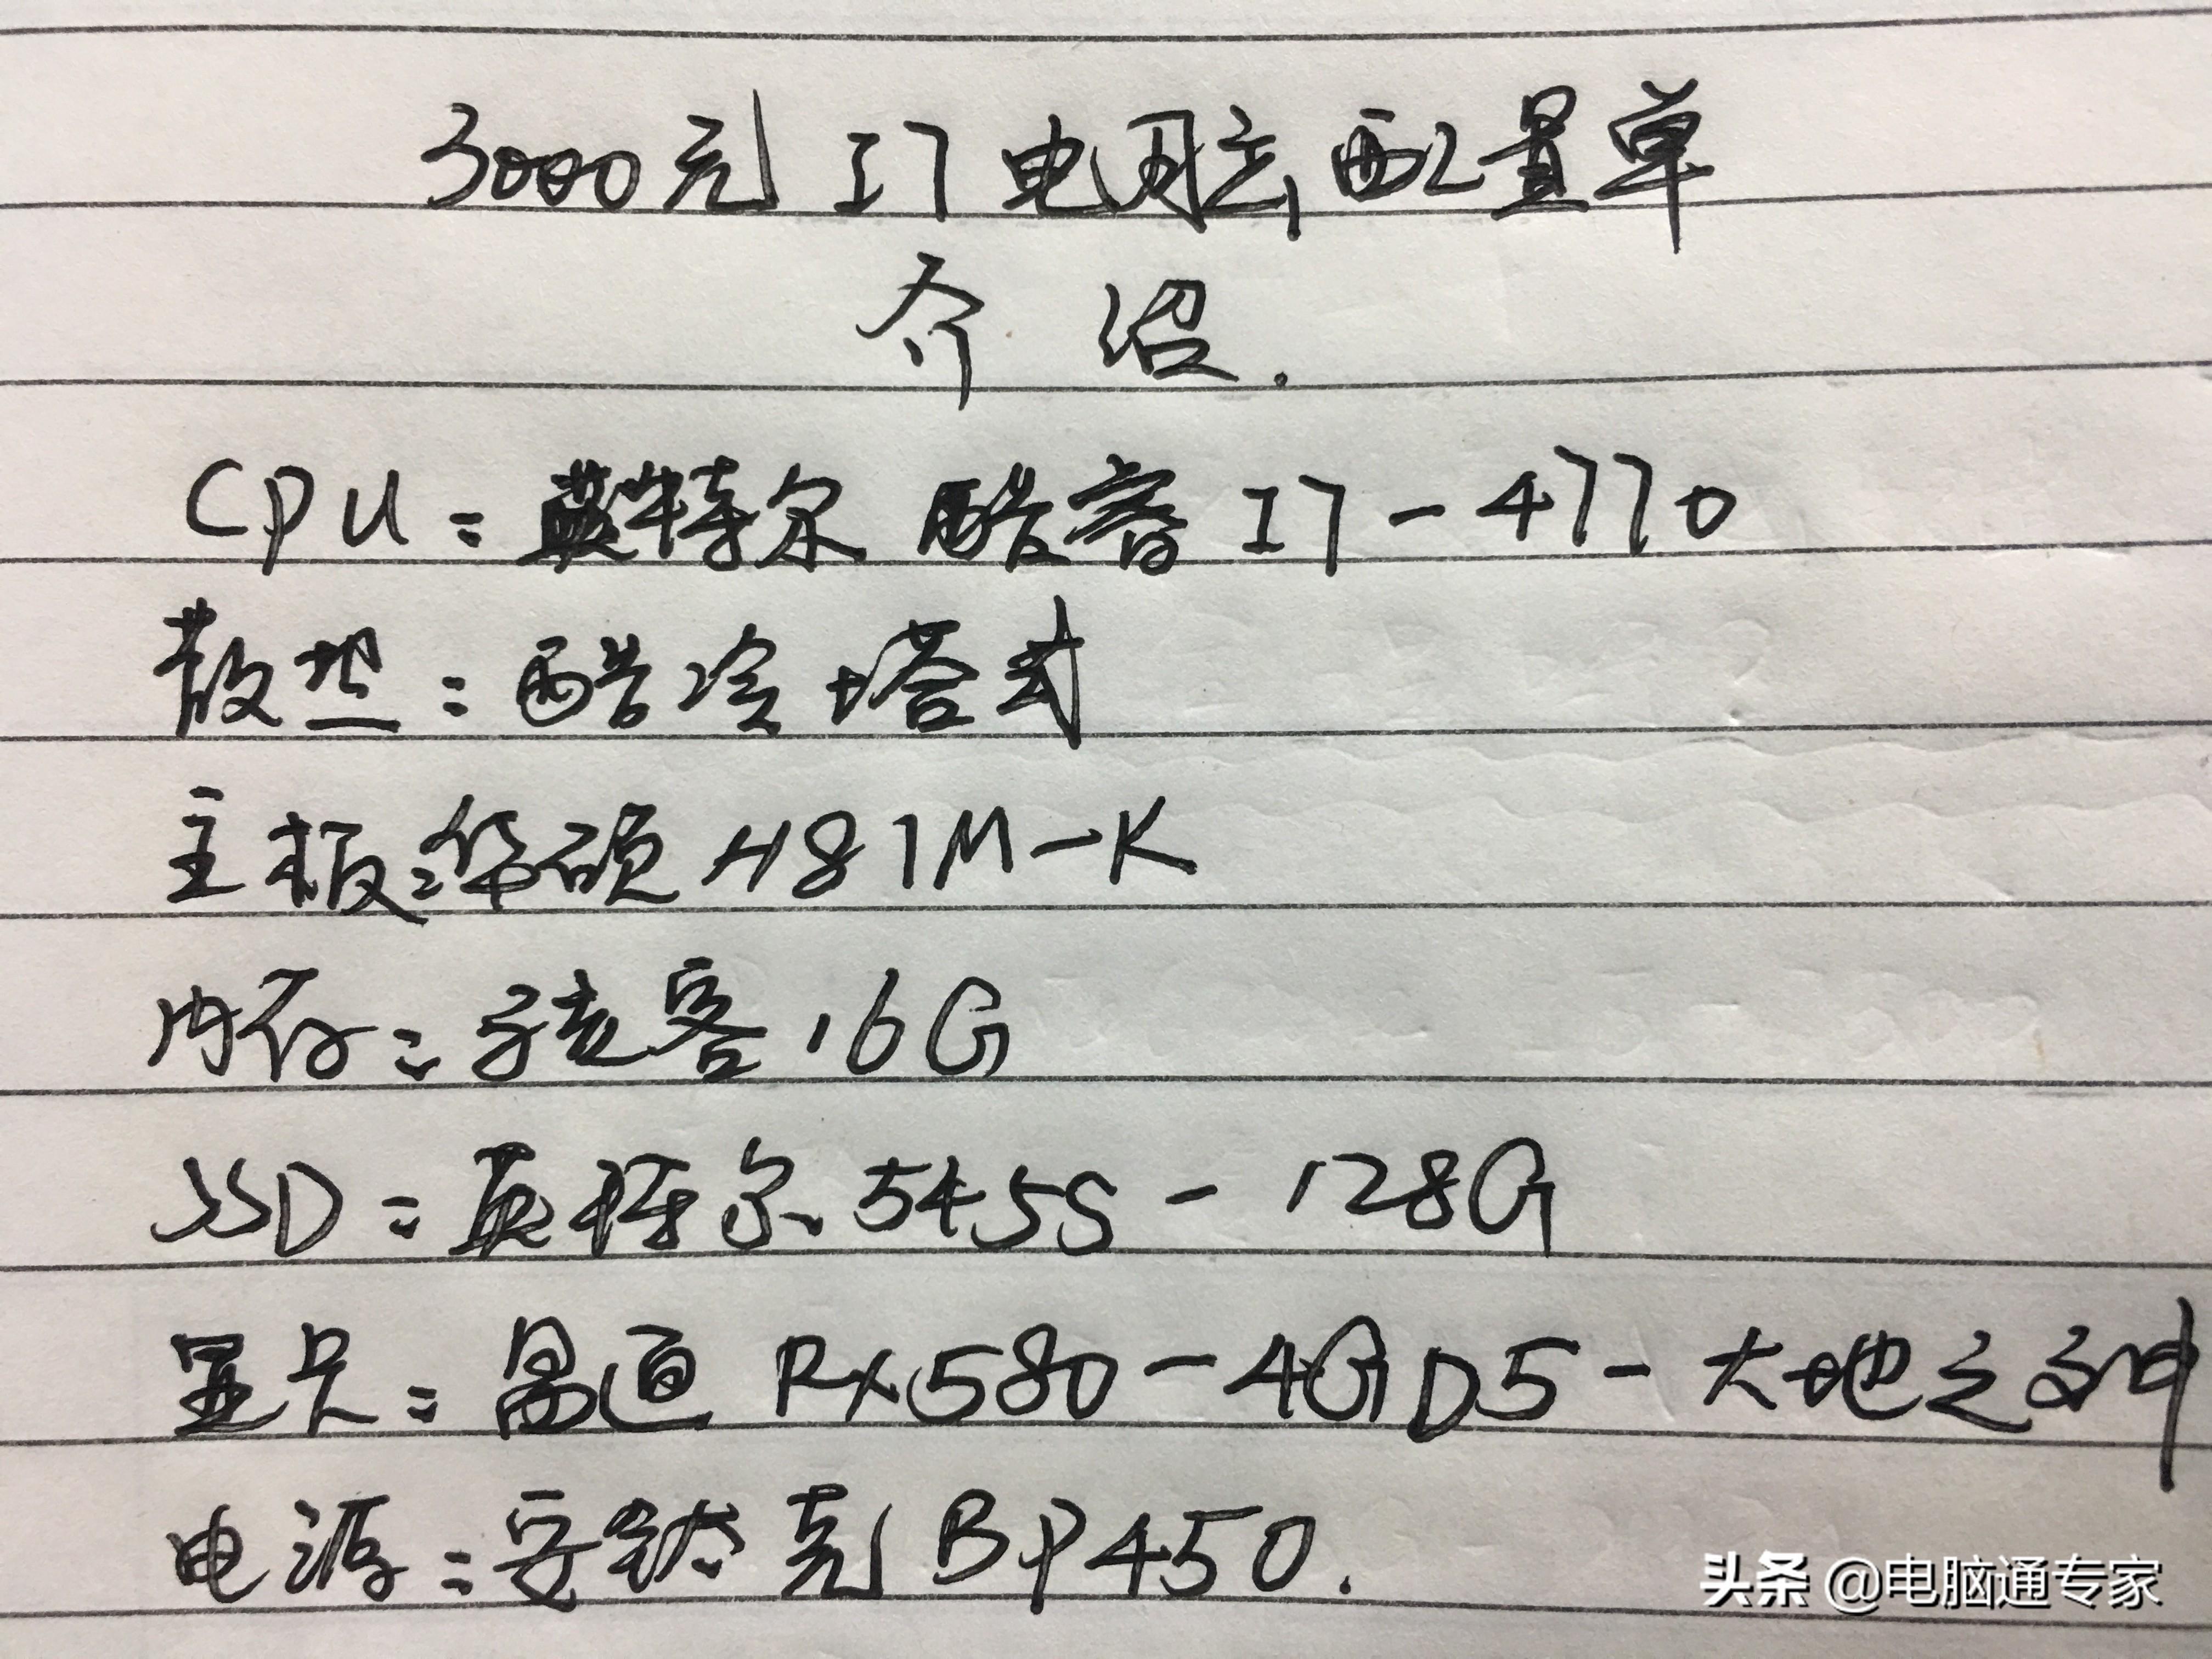 3000元 I7 电脑配置单
介绍.
CPU:英特尔 酷睿 I7-4770
散热:酷冷塔式
主板:华硕 H81M-K
内存:宇瞻客 16G
SSD:英特尔 545S-128G
显卡:昂达 RX580-4GD5-大地之神
电源:安钛克 BP450.
头条 @电脑通专家